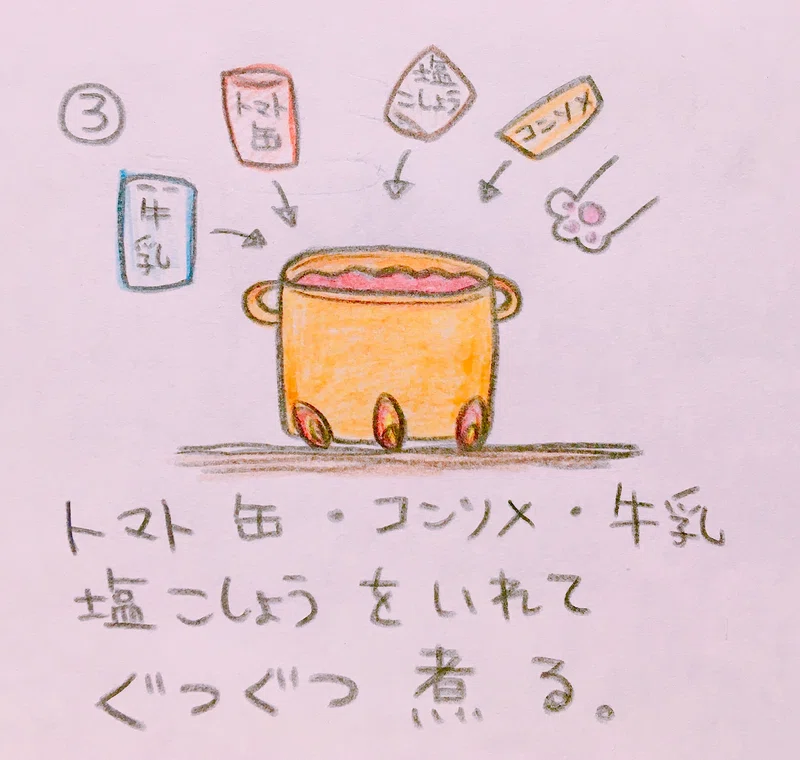 ③
トマト
缶
塩
こしょう
コンソメ
牛
乳
トマト缶・コンソメ・牛乳
塩こしょうをいれて
ぐつぐつ煮る。